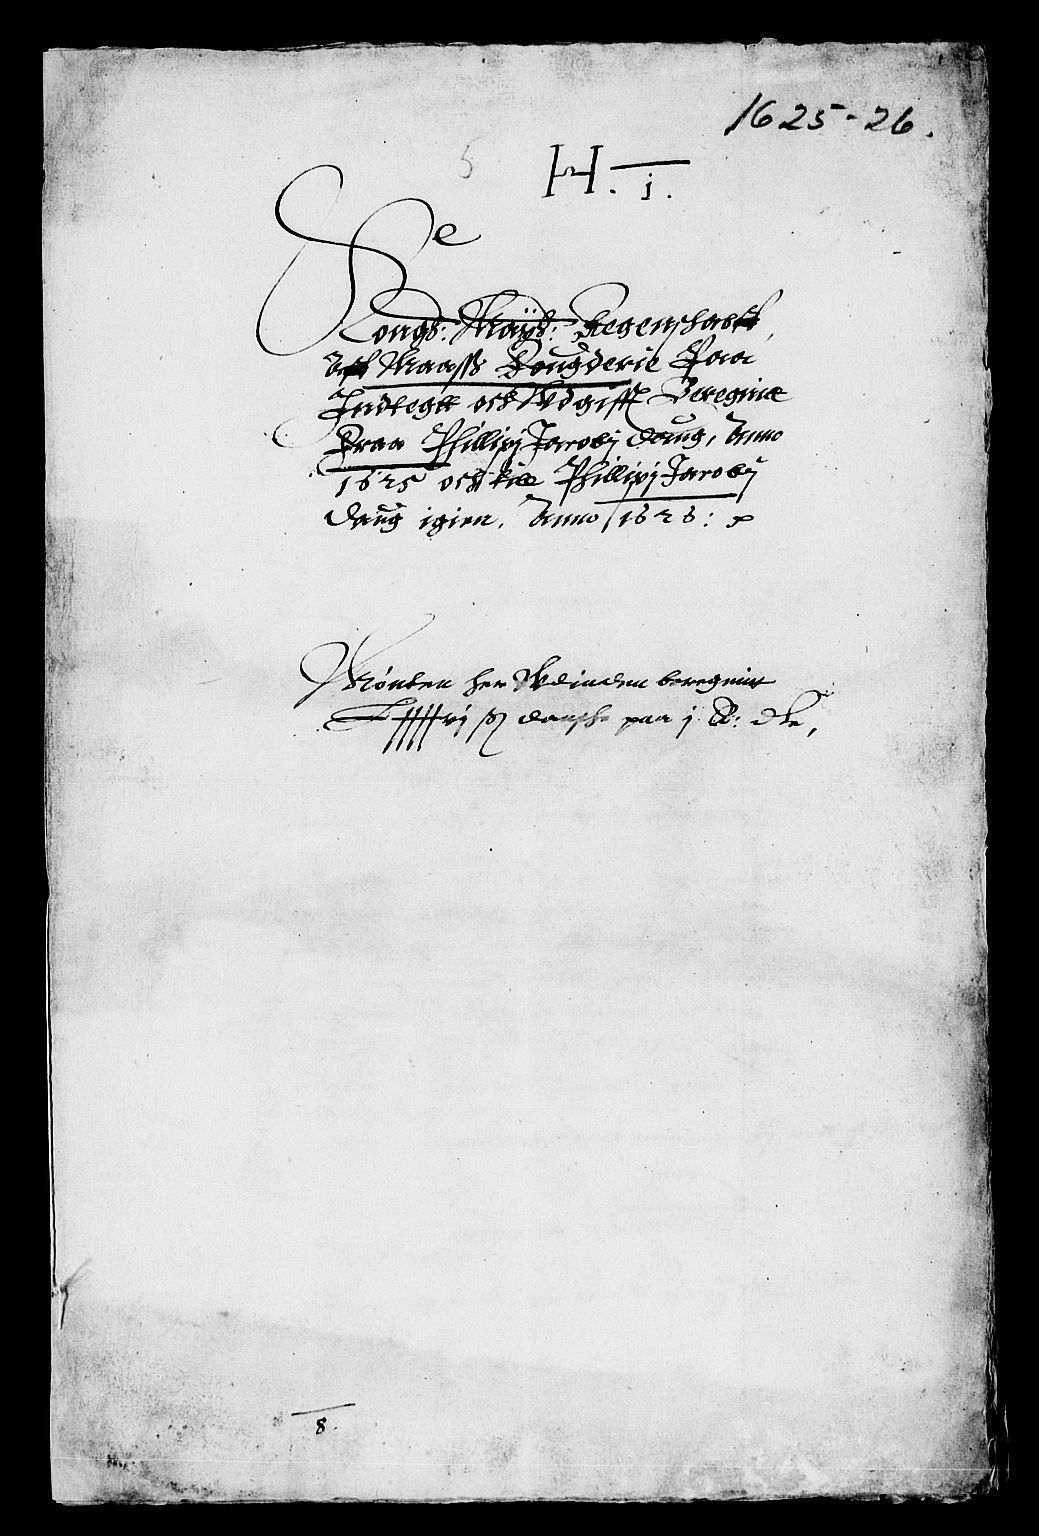 1625-26.
5
H. j.
Kongl: Maytz: Regenschab
Aff Moss Fougderie Paa
Indtegt och Udgifft Beregnit
Fraa Phillipi Jacobj daug, Anno
1625 och till Phillipi Jacobj
daug igien. Anno 1626:
Mønten her Udinden beregnit
paa j dlr,
8.